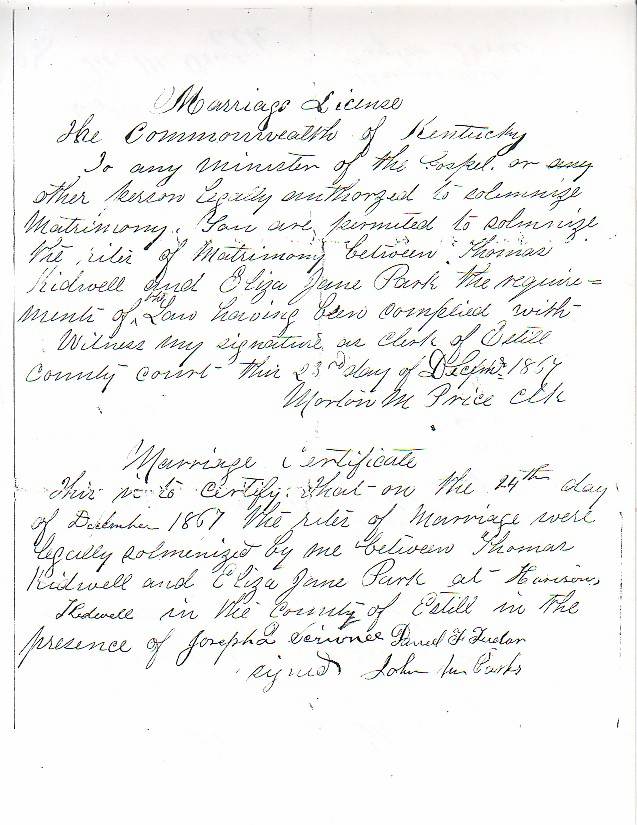 Marriage License
The Commonwealth of Kentucky
To any minister of the Gospel. or any
other person legally authorized to solemnize
Matrimony. You are permited to solmnize
the rites of Matrimony between Thomas
Kidwell and Eliza Jane Park the require=
ments of the Law having been complied with
Witness my signature as Clerk of Estill
County court this 23rd day of Decemr. 1867
Morton M Price Clk
Marriage Certificate
This is to certify that on the 24th day
of December 1867 the rites of Marriage were
legally solmenized by me between Thomas
Kidwell and Eliza Jane Park at Harison
Kidwell in the County of Estill in the
presence of Joseph
signed John